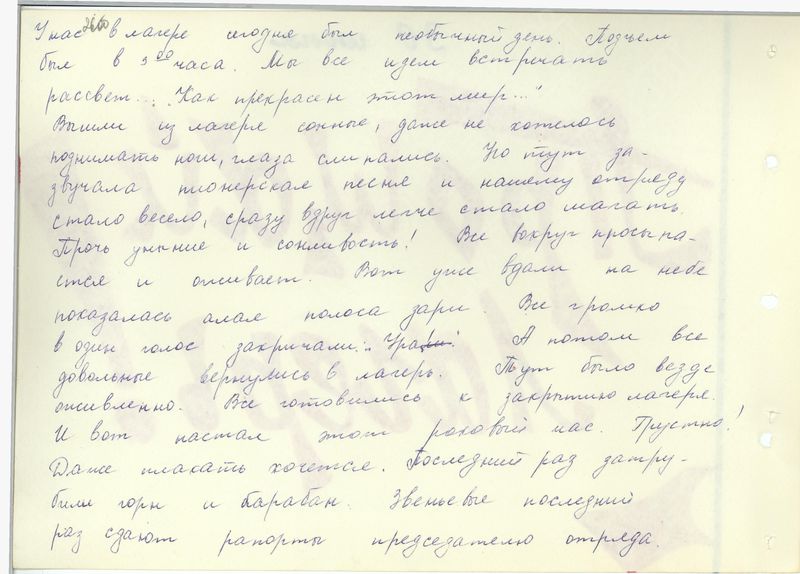 У нас в лагере сегодня был необычный день. Подъем
был в 3 00 часа. Мы все идем встречать
рассвет... "Как прекрасен этот мир..."
Вышли из лагеря сонные, даже не хотелось
поднимать ноги, глаза слипались. Но тут за-
звучала пионерская песня и нашему отряду
стало весело, сразу вдруг легче стало шагать.
Прочь уныние и сонливость! Все вокруг просыпа-
ется и оживает. Вот уже вдали на небе
показалась алая полоса зари. Все громко
в один голос закричали: "Ура!" А потом все
довольные вернулись в лагерь. Тут было везде
оживленно. Все готовились к закрытию лагеря.
И вот настал этот роковый час. Грустно!
Даже плакать хочется. Последний раз затру-
били горн и барабан. Звеньевые последний
раз сдают рапорты председателю отряда.